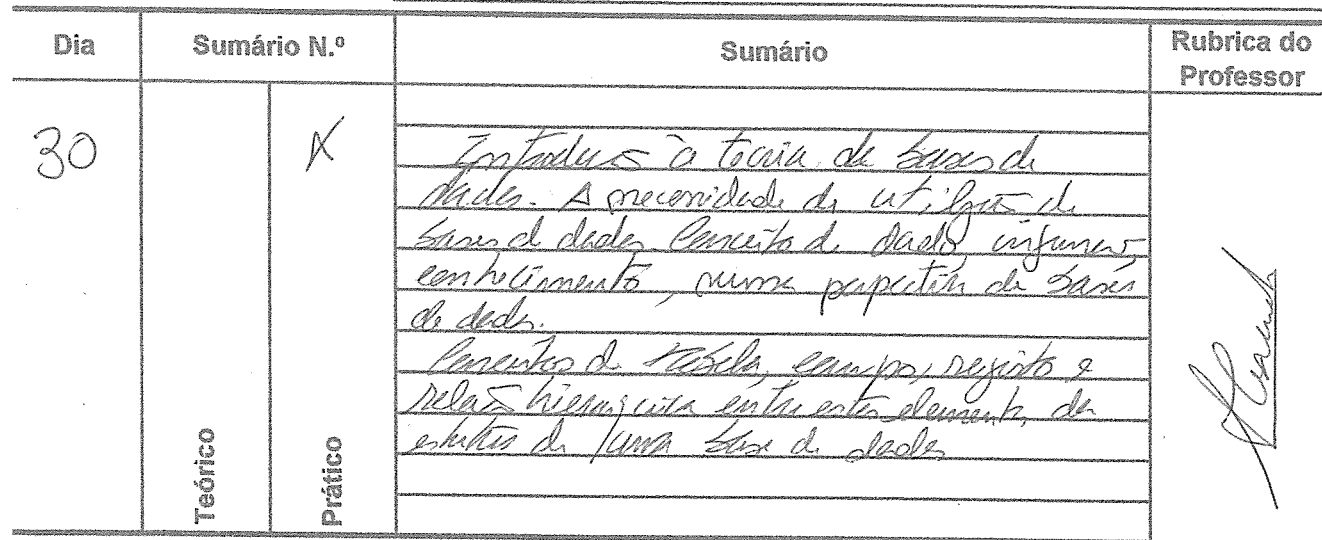 Dia Sumário N.º Sumário Rubrica do Professor
Teórico
Prático
30 X
Introdução à teoria de bases de
dados. A necessidade de utilização de
bases de dados. Conceito de dado, informação,
conhecimento, numa perspectiva de bases
de dados.
Conceitos de tabela, campo, registo e
relação hierárquica entre estes elementos da
estrutura de uma base de dados